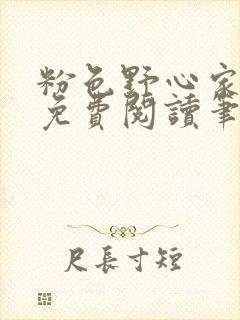 粉色野心家
免費閱讀筆
尺長寸短